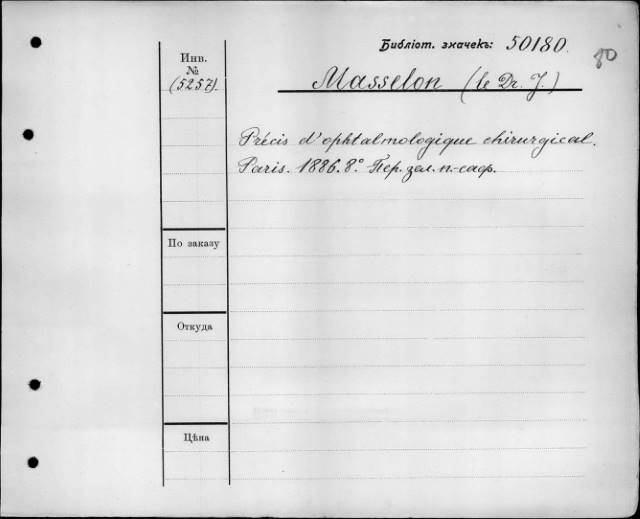 Библіот. значекъ: 50180.
80
Инв.
№
(5257).
Masselon (le Dr. J.)
Précis d'ophtalmologique chirurgical.
Paris. 1886. 8° Пер. зел. п.-саф.
По заказу
Откуда
Цѣна